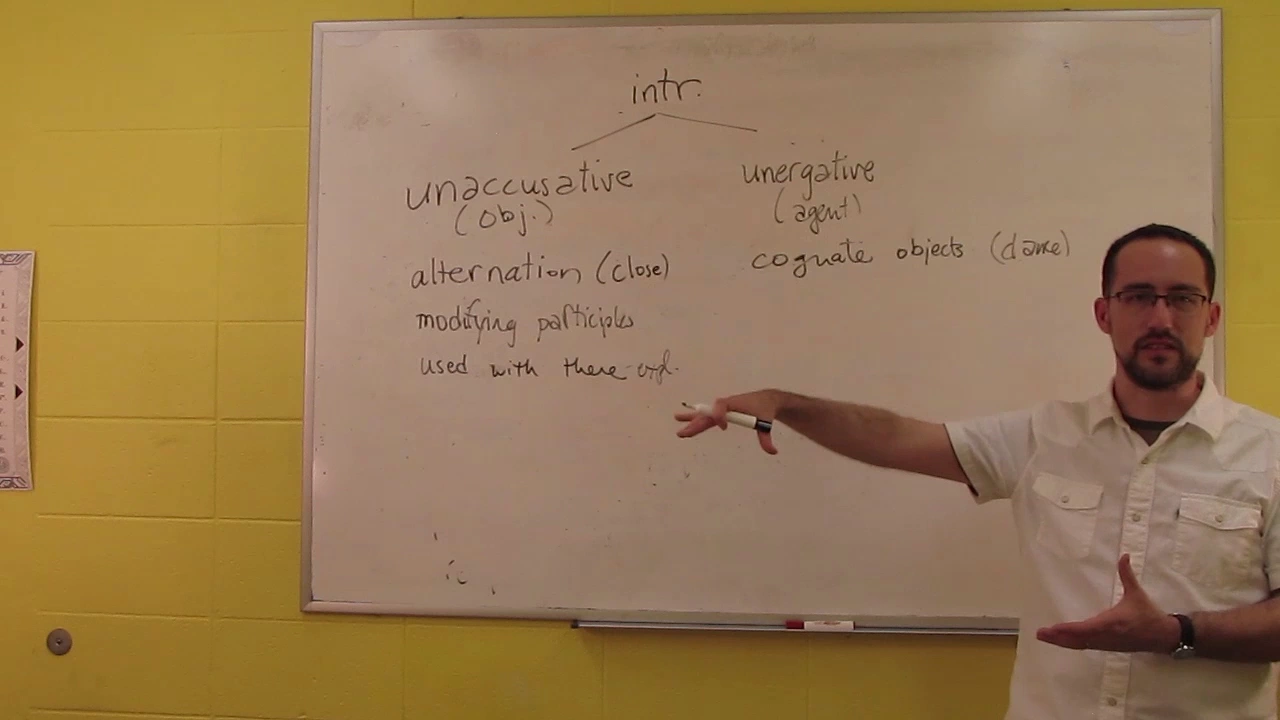 intr.
unaccusative
(obj.)
alternation (close)
modifying participles
used with there-expl.
unergative
(agent)
cognate objects (dance)